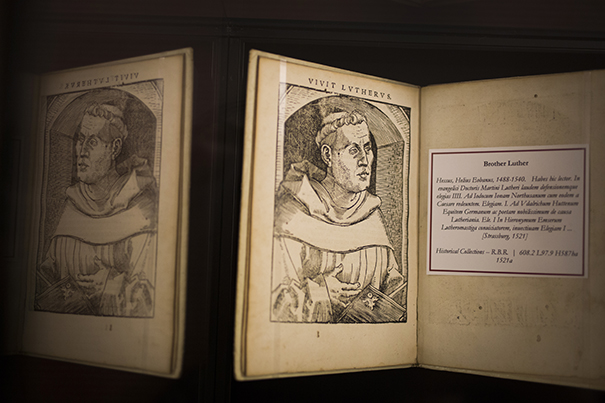 VIVIT LVTHERVS.
Brother Luther
Hessus, Helius Eobanus, 1488-1540. Habes hic lector. In
evangelici Doctoris Martini Lutheri laudem defensionemque
elegias IIII. Ad Iudocum Ionam Northusanum cum eodem a
Caesare redeuntem. Elegiam. I. Ad Vdalrichum Huttenum
Equitem Germanum ac poetam nobilissimum de causa
Lutheriania. Ele. I In Hieronymum Emserum
Lutheromastiga conviciatorem, invectinam Elegiam I ..
[Strassburg, 1521]
Historical Collections – R.B.R. | 608.2 L97.9 H587ha
1521a